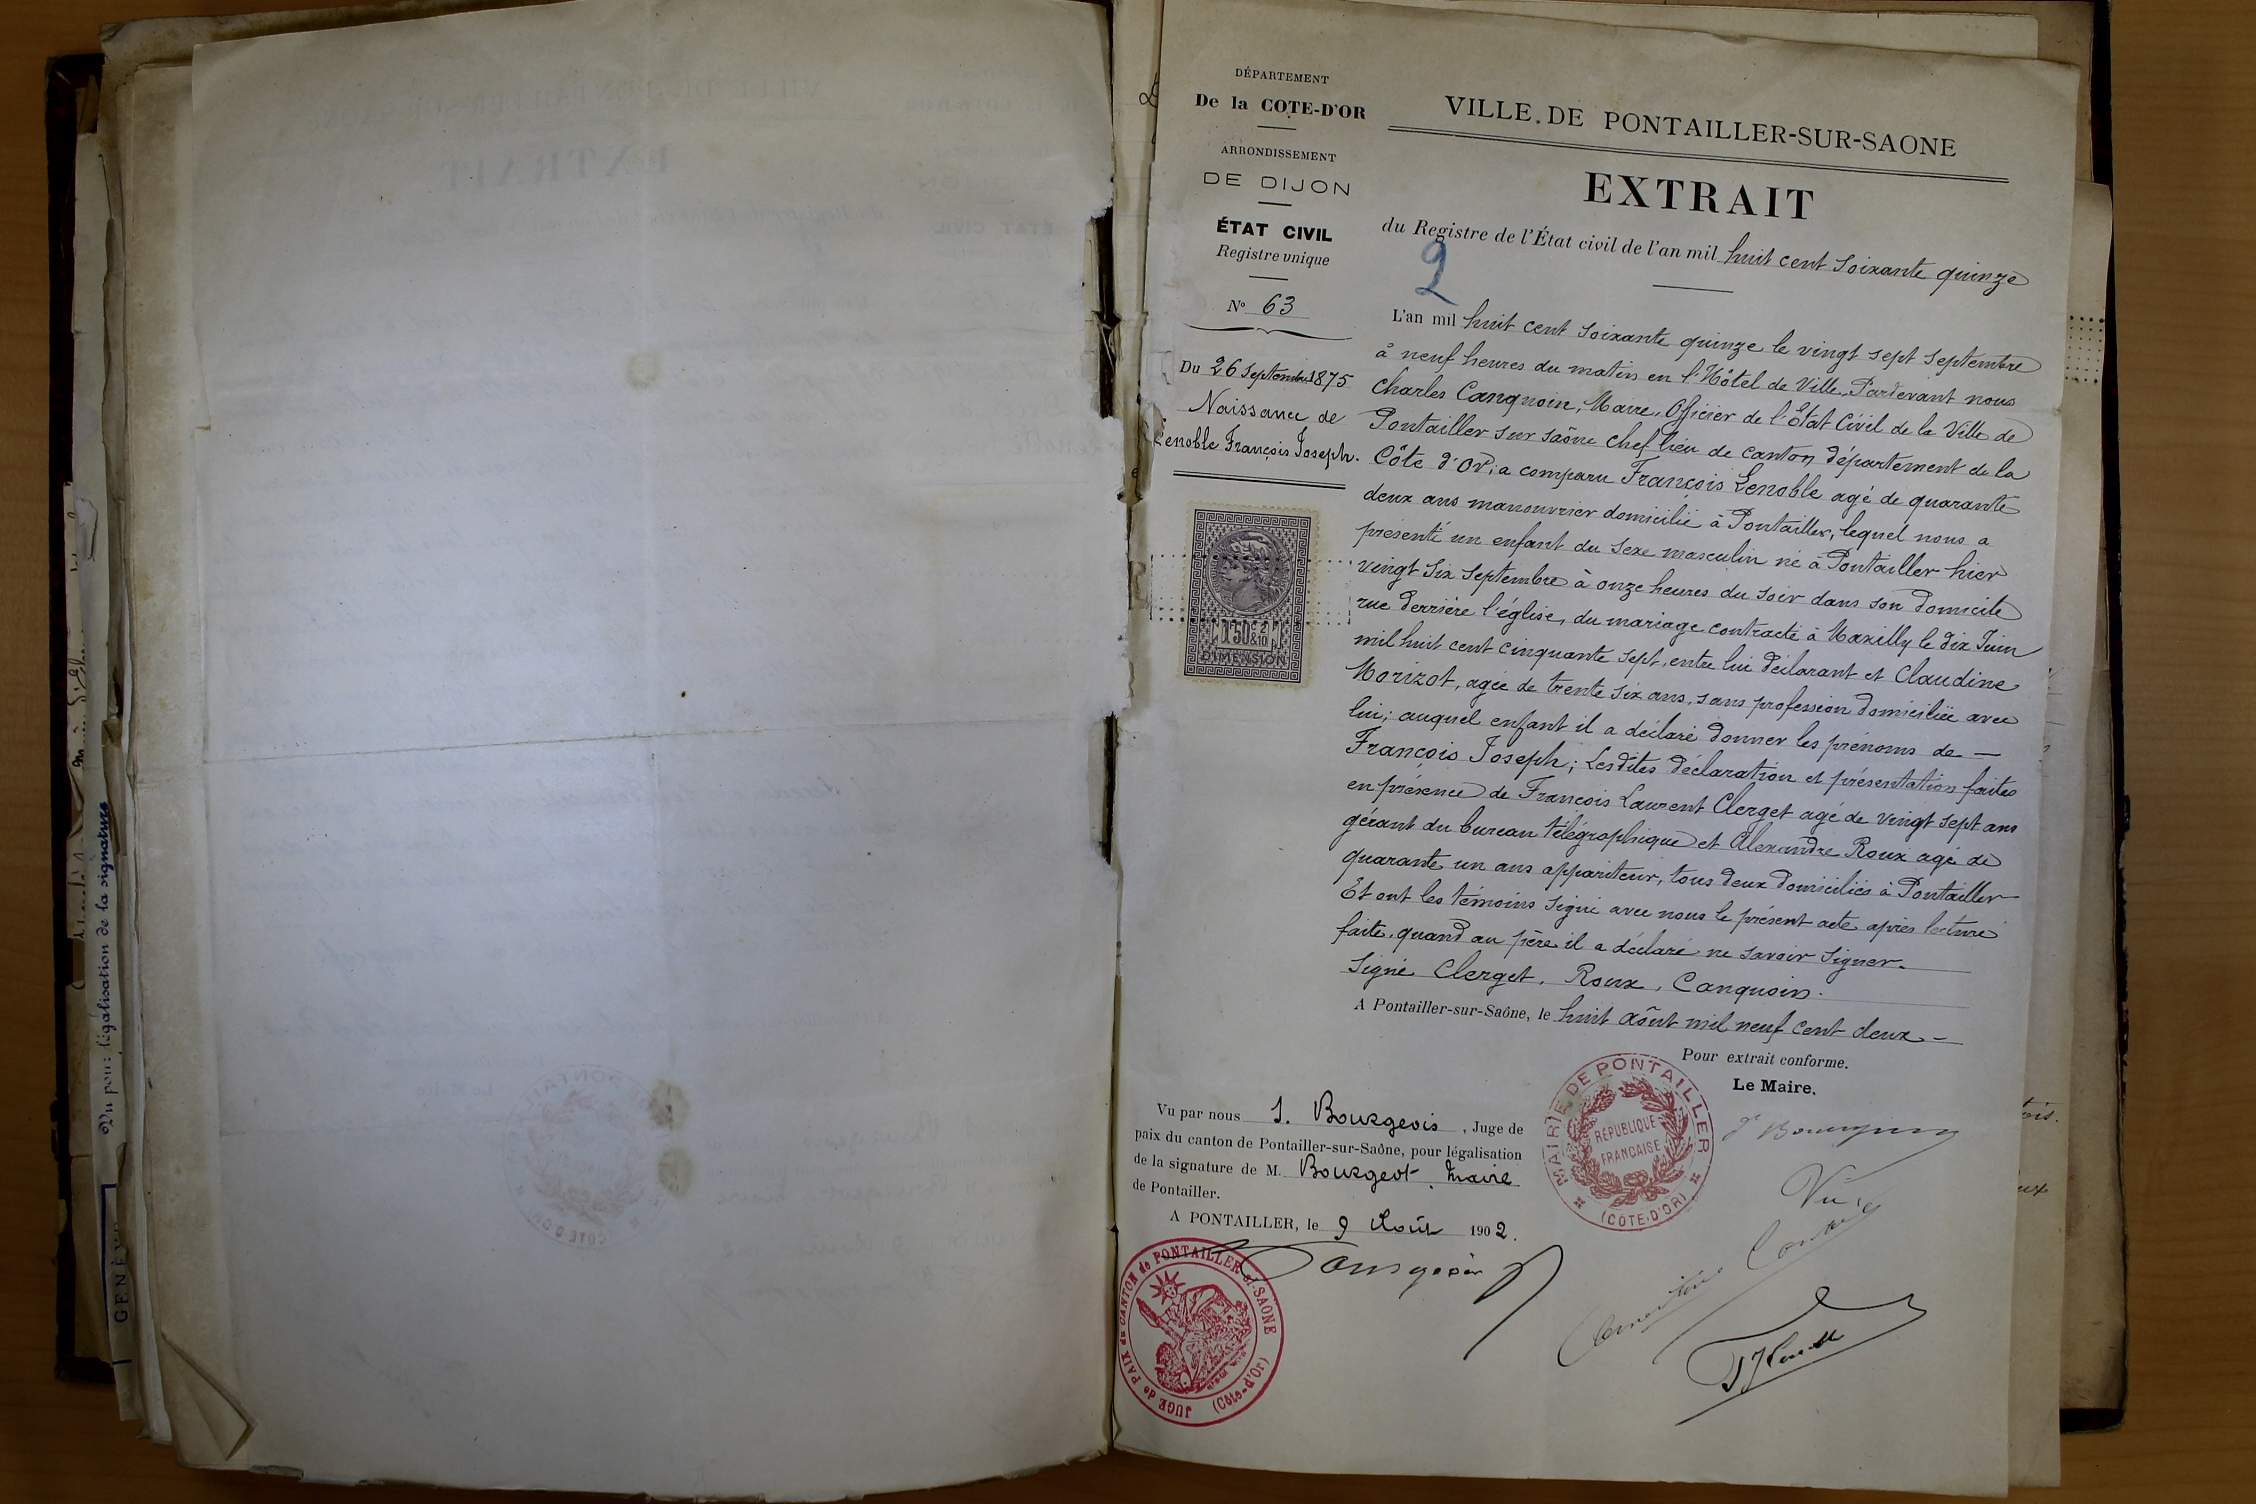 Vu pour légalisation de la signature
GENÈV
DÉPARTEMENT
De la COTE-D'OR
ARRONDISSEMENT
DE DIJON
ÉTAT CIVIL
Registre unique
N° 63
Du 26 Septembre 1875
Naissance de
Lenoble François Joseph.
1F50C 2&10
DIMENSION
VILLE DE PONTAILLER-SUR-SAONE
EXTRAIT
du Registre de l'État civil de l'an mil huit cent soixante quinze
2
L'an mil huit cent soixante quinze le vingt sept septembre
à neuf heures du matin en l'Hôtel de Ville, Pardevant nous
Charles Canquoin, Maire, Officier de l'État Civil de la Ville de
Pontailler sur Saône chef lieu de canton, département de la
Côte d'Or; a comparu François Lenoble agé de quarante
deux ans manouvrier domicilié à Pontailler, lequel nous a
présenté un enfant du sexe masculin né à Pontailler hier
vingt six septembre à onze heures du soir dans son domicile
rue derrière l'église, du mariage contracté à Maxilly le dix Juin
mil huit cent cinquante sept, entre lui déclarant et Claudine
Morizot, agée de trente six ans, sans profession domiciliée avec
lui; auquel enfant il a déclaré donner les prénoms de —
François Joseph; Lesdites déclaration et présentation faites
en présence de François Laurent Clerget agé de vingt sept ans
gérant du bureau télégraphique et Alexandre Roux agé de
quarante un ans appariteur, tous deux domiciliés à Pontailler
Et ont les témoins signé avec nous le présent acte après lecture
faite, quand au père il a déclaré ne savoir signer.
Signé Clerget, Roux, Canquoin.
A Pontailler-sur-Saône, le huit août mil neuf cent deux —
Pour extrait conforme.
Le Maire.
MAIRIE DE PONTAILLER
RÉPUBLIQUE
FRANCAISE
(CÔTE-D'OR)
Vu par nous J. Bourgeois, Juge de
paix du canton de Pontailler-sur-Saône, pour légalisation
de la signature de M. Bourgeot, Maire
de Pontailler.
A PONTAILLER, le 9 Août 1902.
Vu
JUGE DE PAIX du CANTON de PONTAILLER s/ SAONE
(Côte-d'Or)